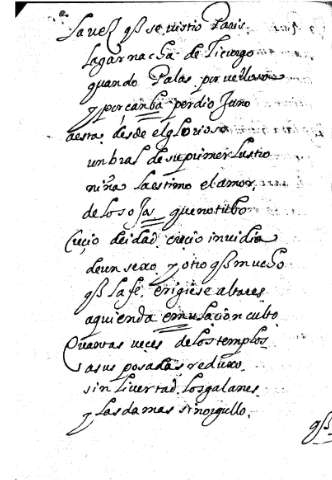 La vez q̃ se uistio Paris
la garnacha de Licurgo
quando Palas por uellosa
y por çanba perdio Juno
aesta desde el glorioso
unbral de su primer lustro
niña la estimo el amor.
de los ojos que no tubo
Crecio deidad, crecio inuidia
de un sexo y otro q̃ mucho
q̃ la fe erigiese altares
a quien da emulaçion culto
Quantas veces de los templos
a sus posadas reduxo.
sin liuertad los galanes.
y las damas sin orgullo.
q̃